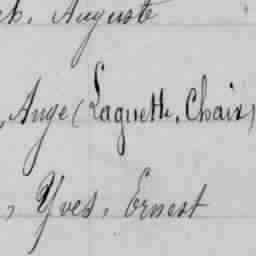 ch. Auguste
, Ange (Laguette, Chaix)
, Yves, Ernest